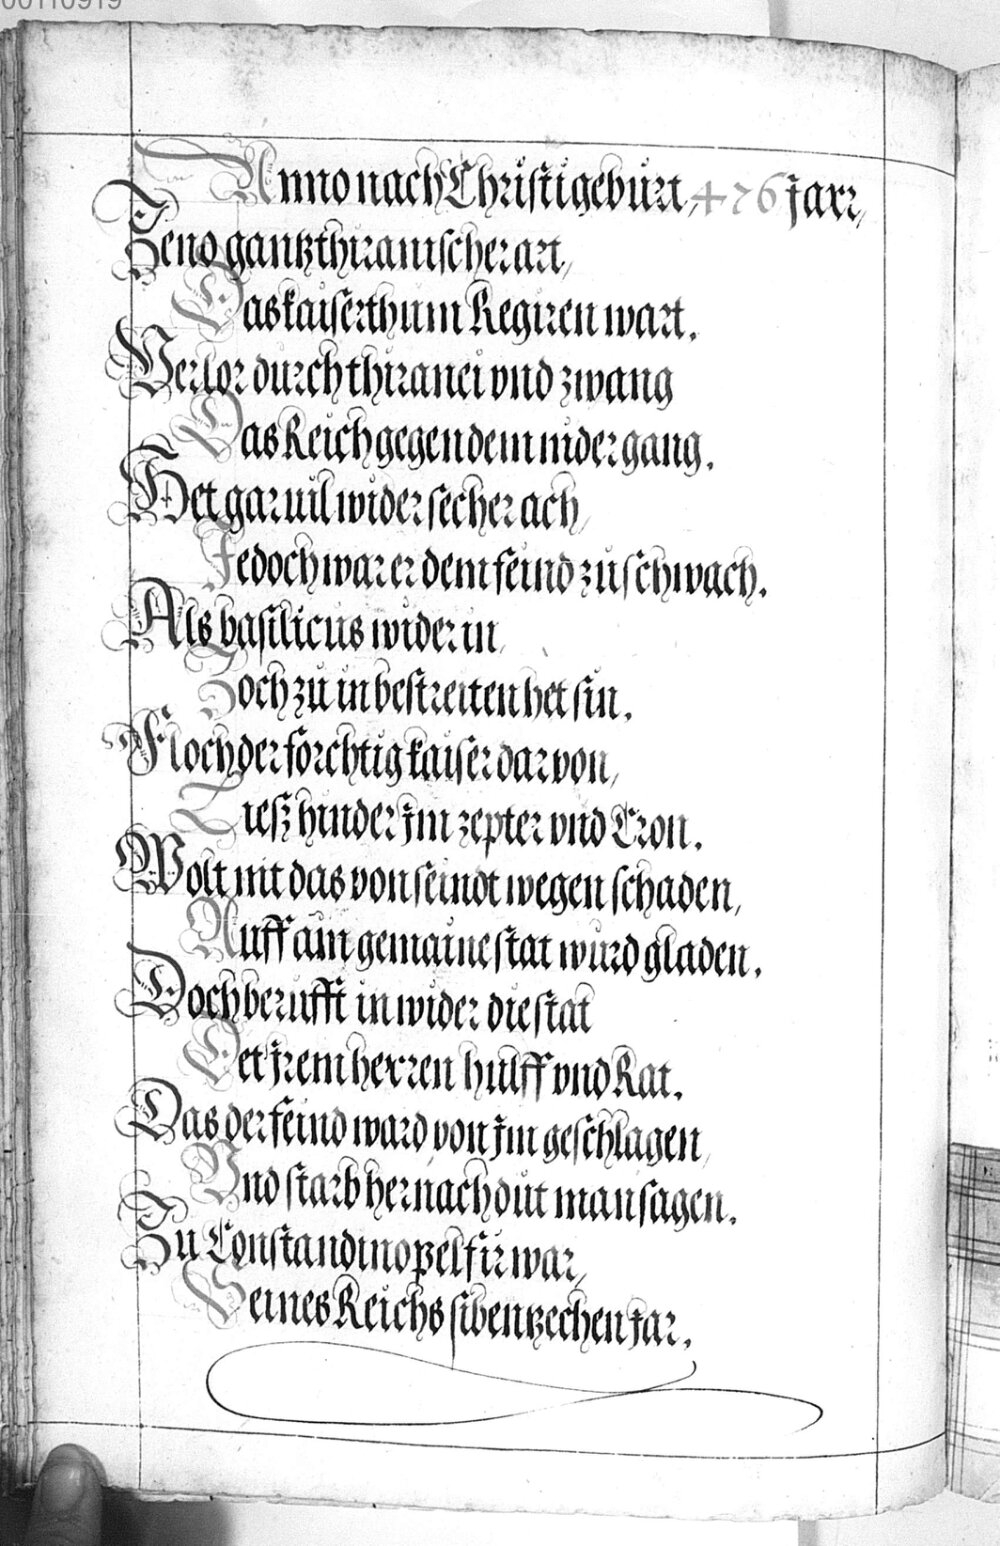 00110919
Anno nach Christi geburt, 476 Jarr,
Zeno gantz thiranischer art,
Das kaiserthum Regiren wart.
Verlor durch thiranei vnd zwang
Das Reich gegen dem nider gang.
Het gar uil widersecher ach,
Jedoch war er dem feind zu schwach.
Als basilicus wider in,
Zoch zu in bestreiten het sin.
Floch der forchtig kaiser darvon,
Ließ hinder Jm zepter vnd Cron.
Wolt nit das von seindt wegen schaden,
Auff ain gemaine stat wurd gladen.
Doch berufft in wider die stat
Det Jrem herren hulff vnd Rat.
Das der feind ward von Jm geschlagen,
Vnd starb hernach dut man sagen.
Zu Constandinopel fir war,
Seines Reichs sibentzechen Jar.